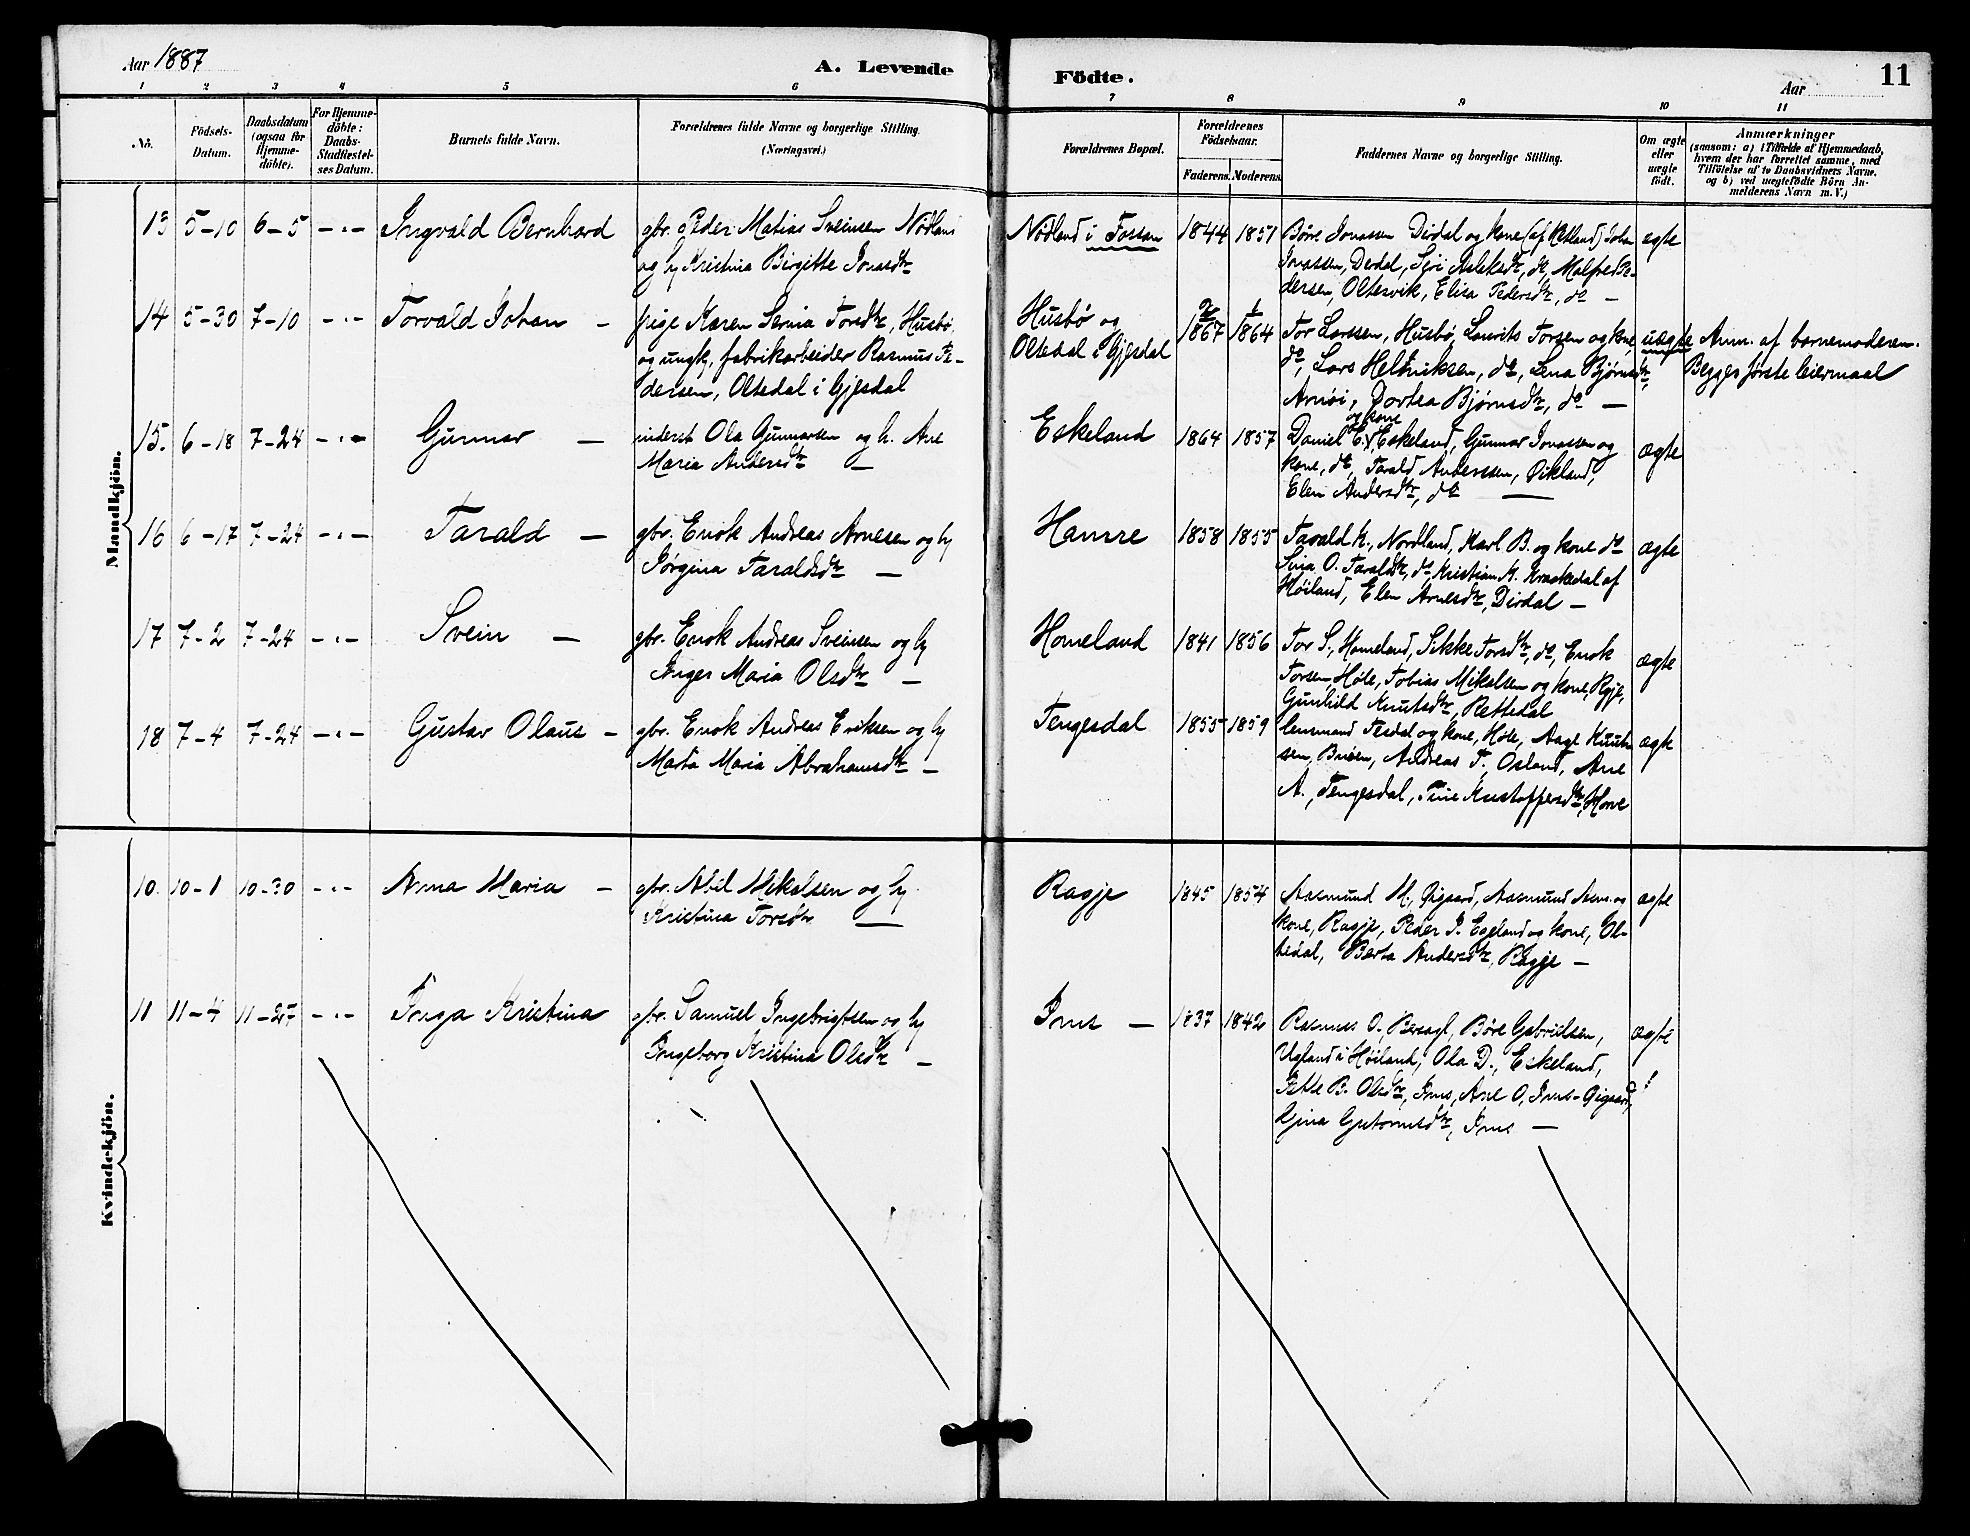 Aar 1887
A. Levende
Födte.
Aar
11
1 2 3 4 5 6 7 8 9 10 11
No.
Födsels-
Datum.
Daabsdatum
(ogsaa for
Hjemme-
döbte).
For Hjemme-
döbte:
Daabs-
Stadfæstel-
ses Datum.
Barnets fulde Navn.
Forældrenes fulde Navne og borgerlige Stilling.
(Næringsvei.)
Forældrenes Bopæl.
Forældrenes
Födselsaar.
Faderens.
Moderens.
Faddernes Navne og borgerlige Stilling.
Om ægte
eller
uægte
födt.
Anmærkninger
(saasom: a) i Tilfælde af Hjemmedaab,
hvem der har forrettet samme, med
Tilföielse af to Daabsvidners Navne.
og b) ved uægtefödte Börn An-
melderens Navn m. V.)
Mandkjön.
13 5-10 6-5 -"- Ingvald Bernhard
gbr. Peder Matias Sveinsen Nødland
og hu Kristina Birgitte Jonasdtr
Nødland i Fossan 1844 1851
Børe Jonassen Dirdal og kone (af Østland) Johan
Jonassen, Dirdal, Seri Aslaksdtr, do, Malfred Pe-
dersen, Oltesvik, Elisa Pedersdtr, do —
ægte
14 5-30 7-10 -"- Torvald Johan —
pige Karen Serina Torsdtr, Husbø,
og ungk. fabrikarbeider Rasmus Pe-
dersen, Oltedal i Gjesdal
Husbø og
Oltedal i Gjesdal
1867 1864
Tor Larssen, Husbø, Laurits Torsen og kone,
do, Lars Heltniksen, do, Lena Bjørnsdtr,
Arnøi, Dortea Bjørnsdtr, do —
uægte
Anm. af barnemoderen.
Begges første leiermaal
15. 6-18 7-24 -"- Gunnar —
inderst Ola Gunnarsen og h. Ane
Maria Andersdtr —
Eskeland 1864 1857
og kone
Daniel E. Eskeland, Gunnar Jonassen og
kone, do, Tarald Anderssen, Øikland,
Elen Andersdtr, do —
ægte
16 6-17 7-24 -"- Tarald —
gbr. Enok Andreas Arnesen og hu
Jørgina Taraldsdtr —
Hamre 1858 1855
Tarald K., Nordland, Karl B. og kone do
Sina O. Taraldsdtr, do, Kristian K. Kraskedal af
Høiland, Elen Arnesdtr, Dirdal —
ægte
17 7-2 7-24 -"- Svein —
gbr. Enok Andreas Sveinsen og hu
Inger Maria Olsdtr —
Homeland 1841 1856
Tor S., Homeland, Sikke Torsdtr, do, Enok
Torsen, Høle, Tobias Mikalsen og kone, Ragje,
Gunhild Knutsdtr, Rettedal
ægte
18 7-4 7-24 -"- Gustav Olaus —
gbr. Enok Andreas Eriksen og hu
Marta Maria Abrahamsdtr —
Tengesdal 1855 1859
lensmand Tesdal og kone, Høle, Aage Knut-
sen, Bråen, Andreas T., Osland, Ane
A., Tengesdal, Tine Kristoffersdtr, Høne
ægte
Kvindekjön.
10. 10-1 10-30 -"- Anna Maria —
gbr. Abil Mikalsen og hu
Kristina Torsdtr —
Ragje 1845 1854
Aasmund M., Øigaard, Aasmund Asm. og
kone, Ragje, Peder P. Egeland og kone, Ol-
tedal, Berta Andersdtr, Ragje —
ægte
11 11-4 11-27 -"- Inga Kristina
gbr. Samuel Ingebrigtsen og hu
Ingeborg Kristina Olsdtr —
Ims — 1837 1842
Rasmus O., Bersagl, Børe Gabrielsen,
Ugland i Høiland, Ola D., Eskeland,
Jette B. Olsdtr, Ims, Ane O, Ims-Øigaard,
Gjina Gutormsdtr, Ims —
ægte
!